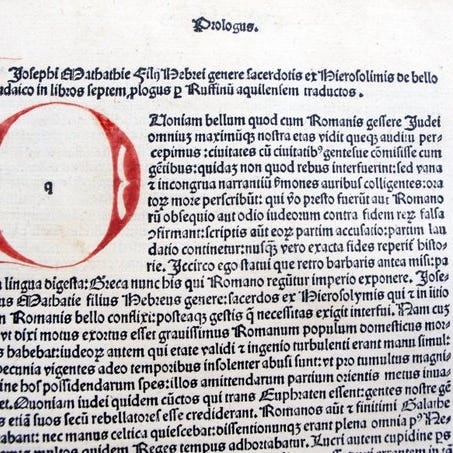 Prologus.
Josephi Mathathie filij Hebrei genere sacerdotis ex Hierosolimis de bello
udaico in libros septem, plogus p Ruffinũ aquilensem traductos.
q
Uoniam bellum quod cum Romanis gessere Judei
omniuʒ maximũqʒ nostra etas vidit queqʒ auditu per-
cepimus: ciuitates cũ ciuitatibꝰ gentesue cõmisisse cum
gẽtibus: quidaʒ non quod rebus interfuerint: sed vana
⁊ incongrua narrantiũ ẜmones auribus colligentes: ora
toꝝ more perscribũt: qui ṽo presto fuerũt aut Romano
rũ obsequio aut odio iudeorum contra fidem reꝝ falsa
ꝯfirmant: scriptis aũt eoꝝ partim accusatio: partim lau
datio continetur: nusqʒ̃ vero exacta fides reperit̃ histo-
rie. Jccirco ego statui que retro barbaris antea misi: pa
lingua digesta: Greca nunc his qui Romano regũtur imperio exponere. Jose-
us Mathatie filius Hebreus genere: sacerdos ex Hierosolymis qui ⁊ initio
Romanis bello conflixi: posteaqʒ gestis q̃ necessitas exigit interfui. Nam cuʒ
vt dixi motus exortus esset grauissimus Romanum populum domesticus mor-
s habebat: iudeoꝝ autem qui etate validi ⁊ ingenio turbulenti erant manu simul:
pecunia vigentes adeo temporibus insolenter abusi sunt: vt pro tumultus magni-
ine hos possidendarum spes: illos amittendarum partium orientis metus inua-
et. Quoniam iudei quidem cũctos qui trans Euphraten essent: gentes nostre gẽ
s etiã suos secũ rebellatores esse crediderant. Romanos aũt ⁊ finitimi Galathe
abant: nec manus celtica quiescebat: dissentionumqʒ erant plena omnia p̃ Ne-
multos quidem Reges tempus adhortabatur. Lucri autem cupidine